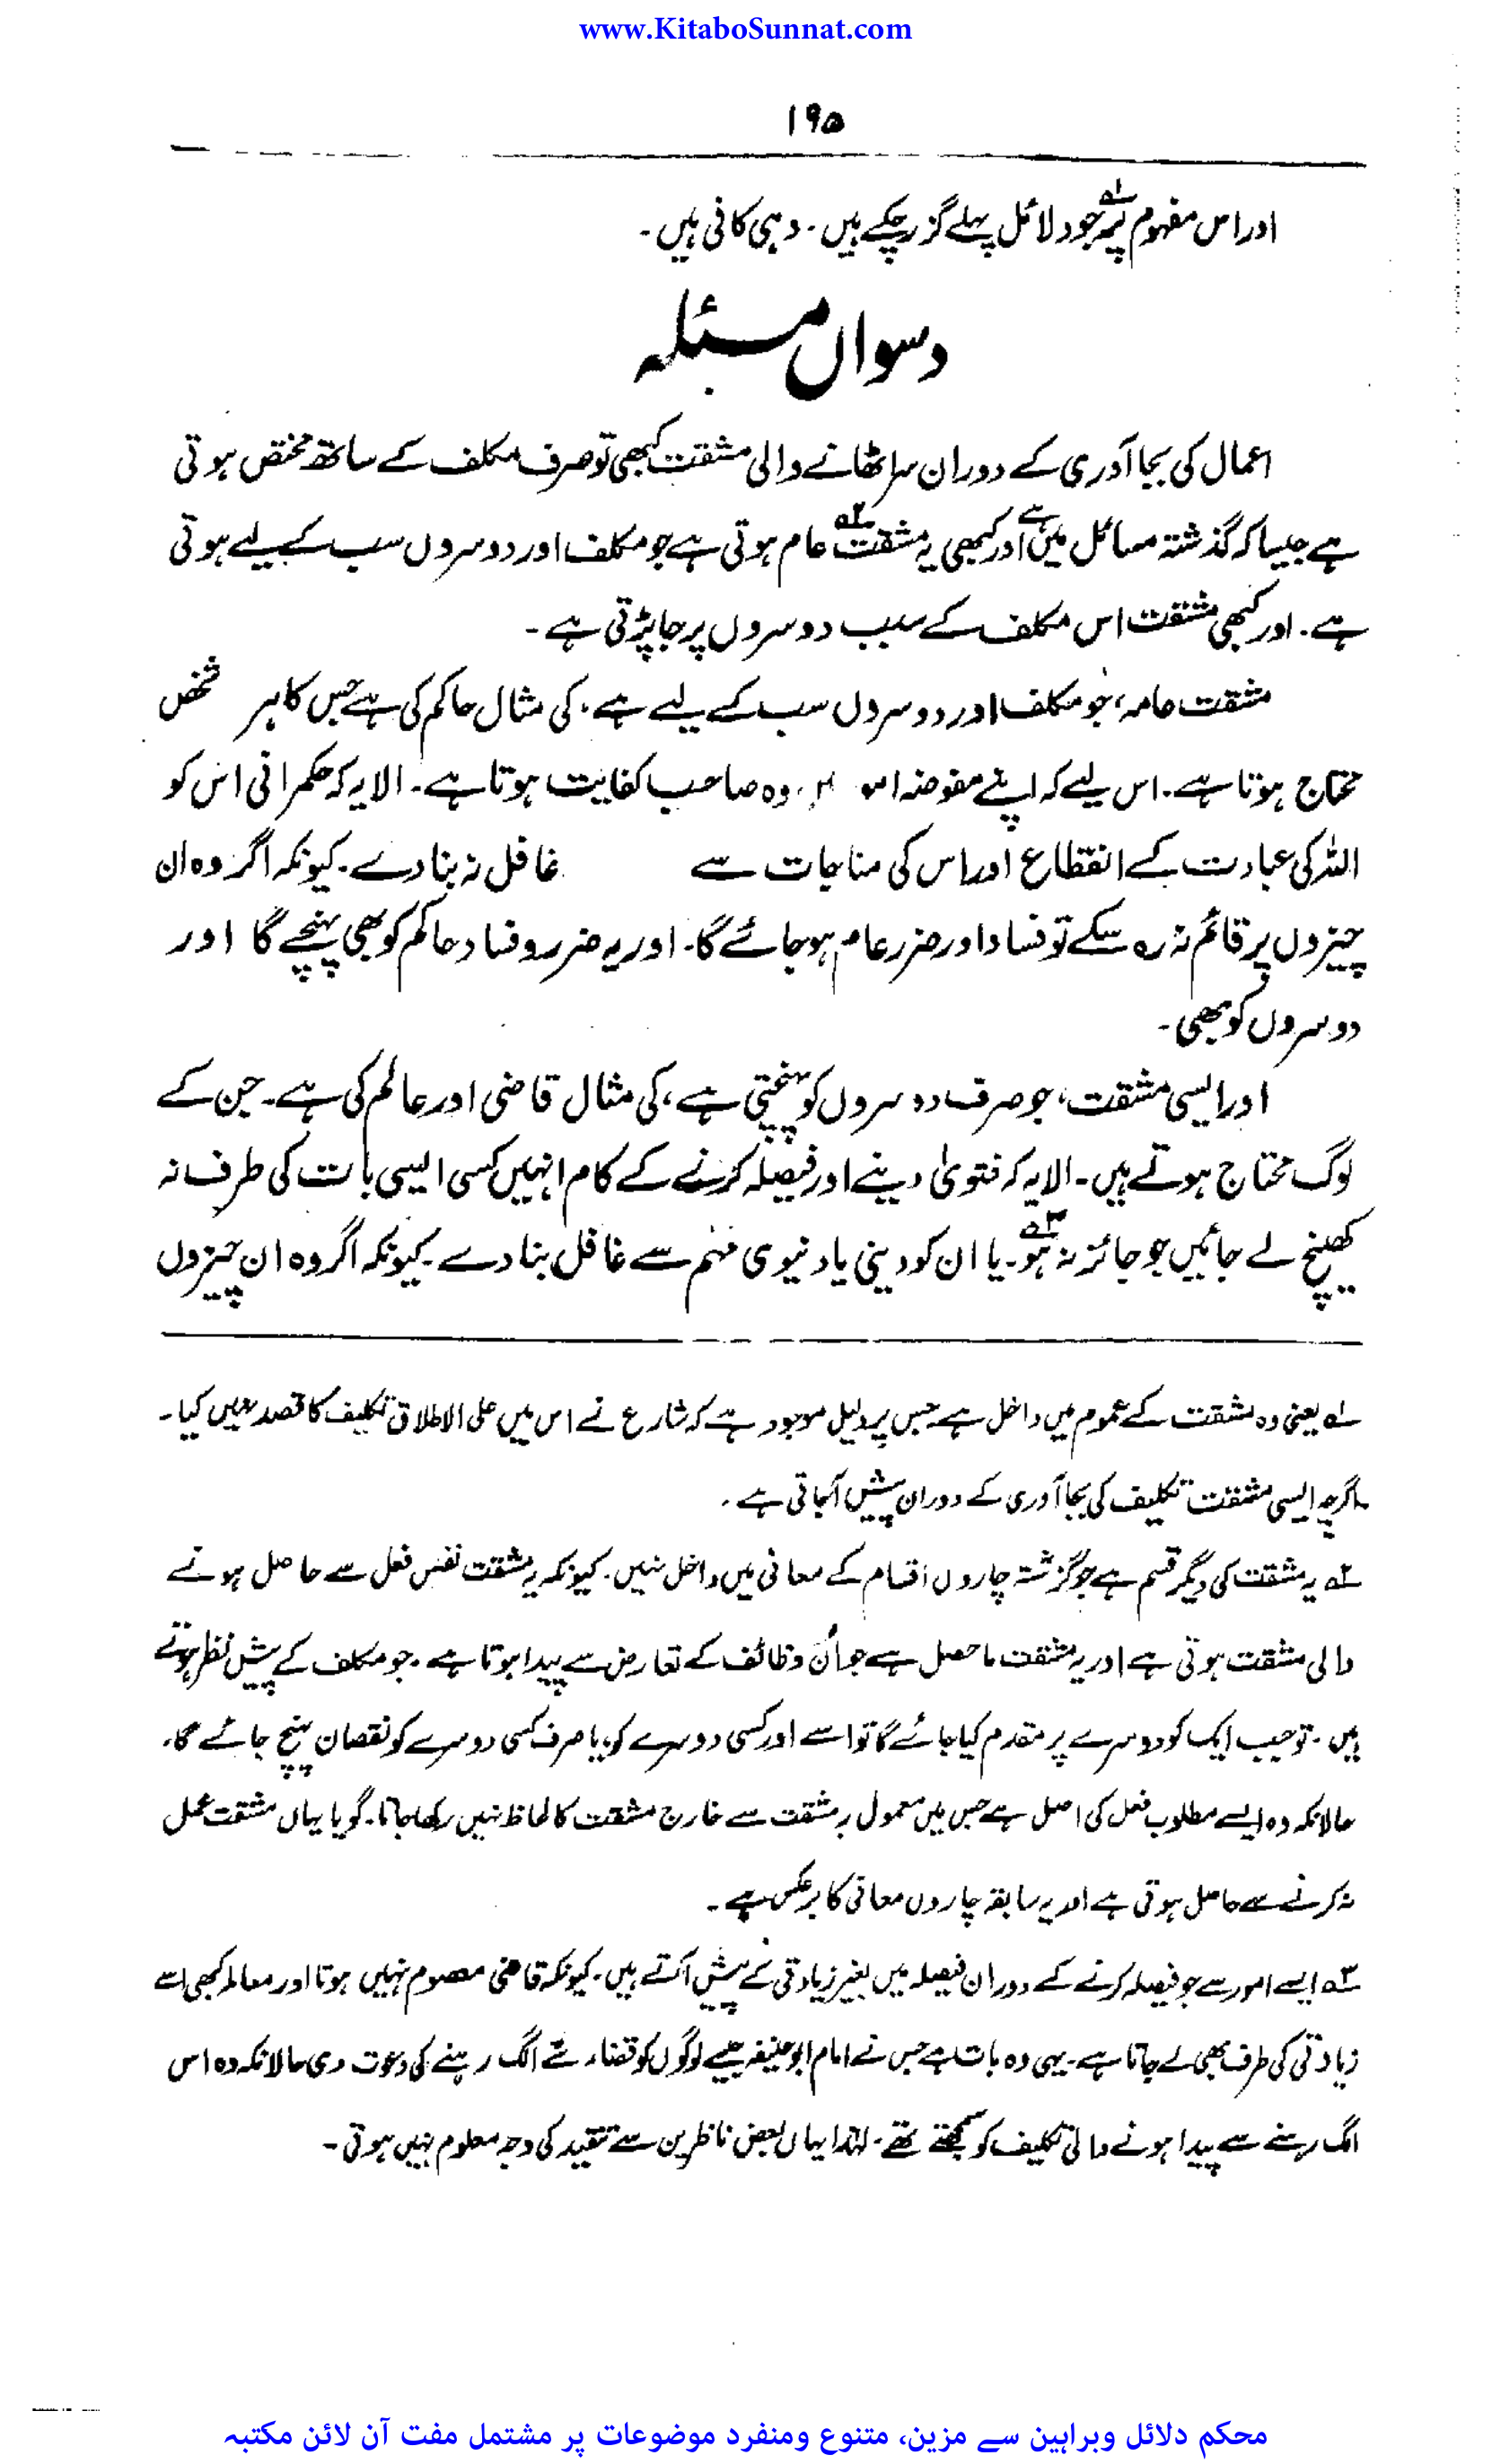 www.KitaboSunnat.com
۱۹۵
اور اس مفہوم پر۱ھ جو دلائل پہلے گزر چکے ہیں۔ وہی کافی ہیں۔
دسواں مسئلہ
اعمال کی بجا آوری کے دوران سر اٹھانے والی مشقت کبھی تو صرف مکلف کے ساتھ مختص ہوتی
ہے جیسا کہ گذشتہ مسائل میں ہے اور کبھی یہ مشقت۲ھ عام ہوتی ہے جو مکلف اور دوسروں سب کے لیے ہوتی
ہے۔ اور کبھی مشقت اس مکلف کے سبب دوسروں پر جا پڑتی ہے۔
مشقت عامہ، جو مکلف اور دوسروں سب کے لیے ہے، کی مثال حاکم کی ہے جس کا ہر شخص
محتاج ہوتا ہے۔ اس لیے کہ اپنے مفوضہ وہ صاحب کفایت ہوتا ہے۔ الا یہ کہ حکمرانی اس کو
اللہ کی عبادت کے انقطاع اور اس کی مناجات سے غافل نہ بنا دے۔ کیونکہ اگر وہ ان
چیزوں پر قائم نہ رہ سکے تو فساد اور ضرر عام ہو جائے گا۔ اور یہ ضرر و فساد حاکم کو بھی پہنچے گا اور
دوسروں کو بھی۔
اور ایسی مشقت، جو صرف دوسروں کو پہنچتی ہے، کی مثال قاضی اور عالم کی ہے۔ جن کے
لوگ محتاج ہوتے ہیں۔ الا یہ کہ فتویٰ دینے اور فیصلہ کرنے کے کام انہیں کسی ایسی بات کی طرف نہ
کھینچ لے جائیں جو جائز نہ ہو۔۳ھ یا ان کو دینی یا دنیوی مہم سے غافل بنا دے۔ کیونکہ اگر وہ ان چیزوں
۱ھ یعنی وہ مشقت کے عموم میں داخل ہے جس پر دلیل موجود ہے کہ شارع نے اس میں علی الاطلاق تکلیف کا قصد نہیں کیا۔
اگرچہ ایسی مشقت تکلیف کی بجا آوری کے دوران پیش آجاتی ہے۔
۲ھ یہ مشقت کی دیگر قسم ہے جو گزشتہ چاروں اقسام کے معانی میں داخل نہیں۔ کیونکہ یہ مشقت نفس فعل سے حاصل ہونے
والی مشقت ہوتی ہے اور یہ مشقت ماحصل ہے جو ان وظائف کے تعارض سے پیدا ہوتا ہے۔ جو مکلف کے پیش نظر ہوتے
ہیں۔ تو جب ایک کو دوسرے پر مقدم کیا جائے گا تو اسے اور کسی دوسرے کو، یا صرف کسی دوسرے کو نقصان پہنچ جائے گا۔
حالانکہ وہ ایسے مطلوب فعل کی اصل ہے جس میں معمول بہ مشقت سے خارج مشقت کا لحاظ نہیں رکھا جاتا۔ گویا یہاں مشقت عمل
نہ کرنے سے حاصل ہوتی ہے اور یہ سابقہ چاروں معانی کا برعکس ہے۔
۳ھ ایسے امور سے جو فیصلہ کرنے کے دوران فیصلہ میں بغیر زیادتی کے پیش آتے ہیں۔ کیونکہ قاضی معصوم نہیں ہوتا اور معاملہ کبھی اسے
زیادتی کی طرف بھی لے جاتا ہے۔ یہی وہ بات ہے جس نے امام ابو حنیفہ جیسے لوگوں کو قضاء سے الگ رہنے کی دعوت دی حالانکہ وہ اس
الگ رہنے سے پیدا ہونے والی تکلیف کو سمجھتے تھے۔ لہٰذا یہاں بعض ناظرین سے تنقید کی وجہ معلوم نہیں ہوتی۔
محکم دلائل وبراہین سے مزین، متنوع ومنفرد موضوعات پر مشتمل مفت آن لائن مکتبہ